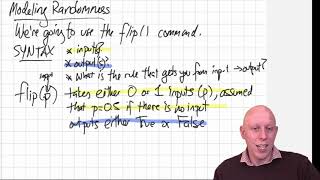 Modeling Randomness
We're going to use the flip() command.
SYNTAX * inputs?
* output(s)?
* What is the rule that gets you from input → output?
input
flip(p) takes either 0 or 1 inputs (p), assumed
that p=0.5 if there is no input
outputs either True or False